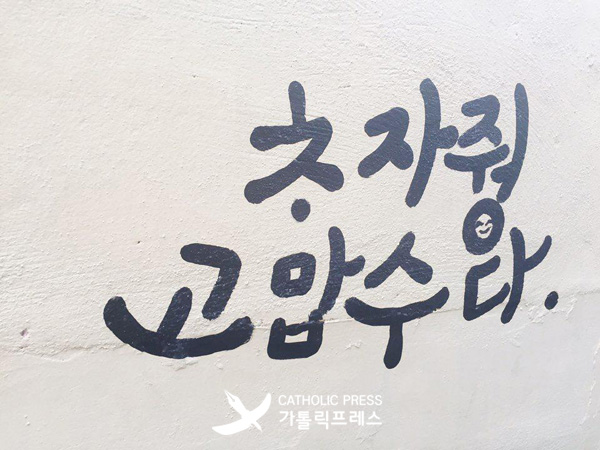 ᄎᆞ자줭
고맙수다.
CATHOLIC PRESS
가톨릭프레스